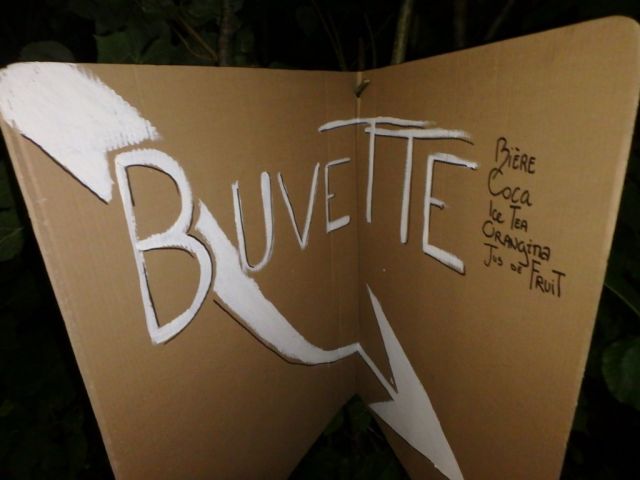 BUVETTE
BIÈRE
COCA
ICE TEA
ORANGINA
JUS DE FRUIT